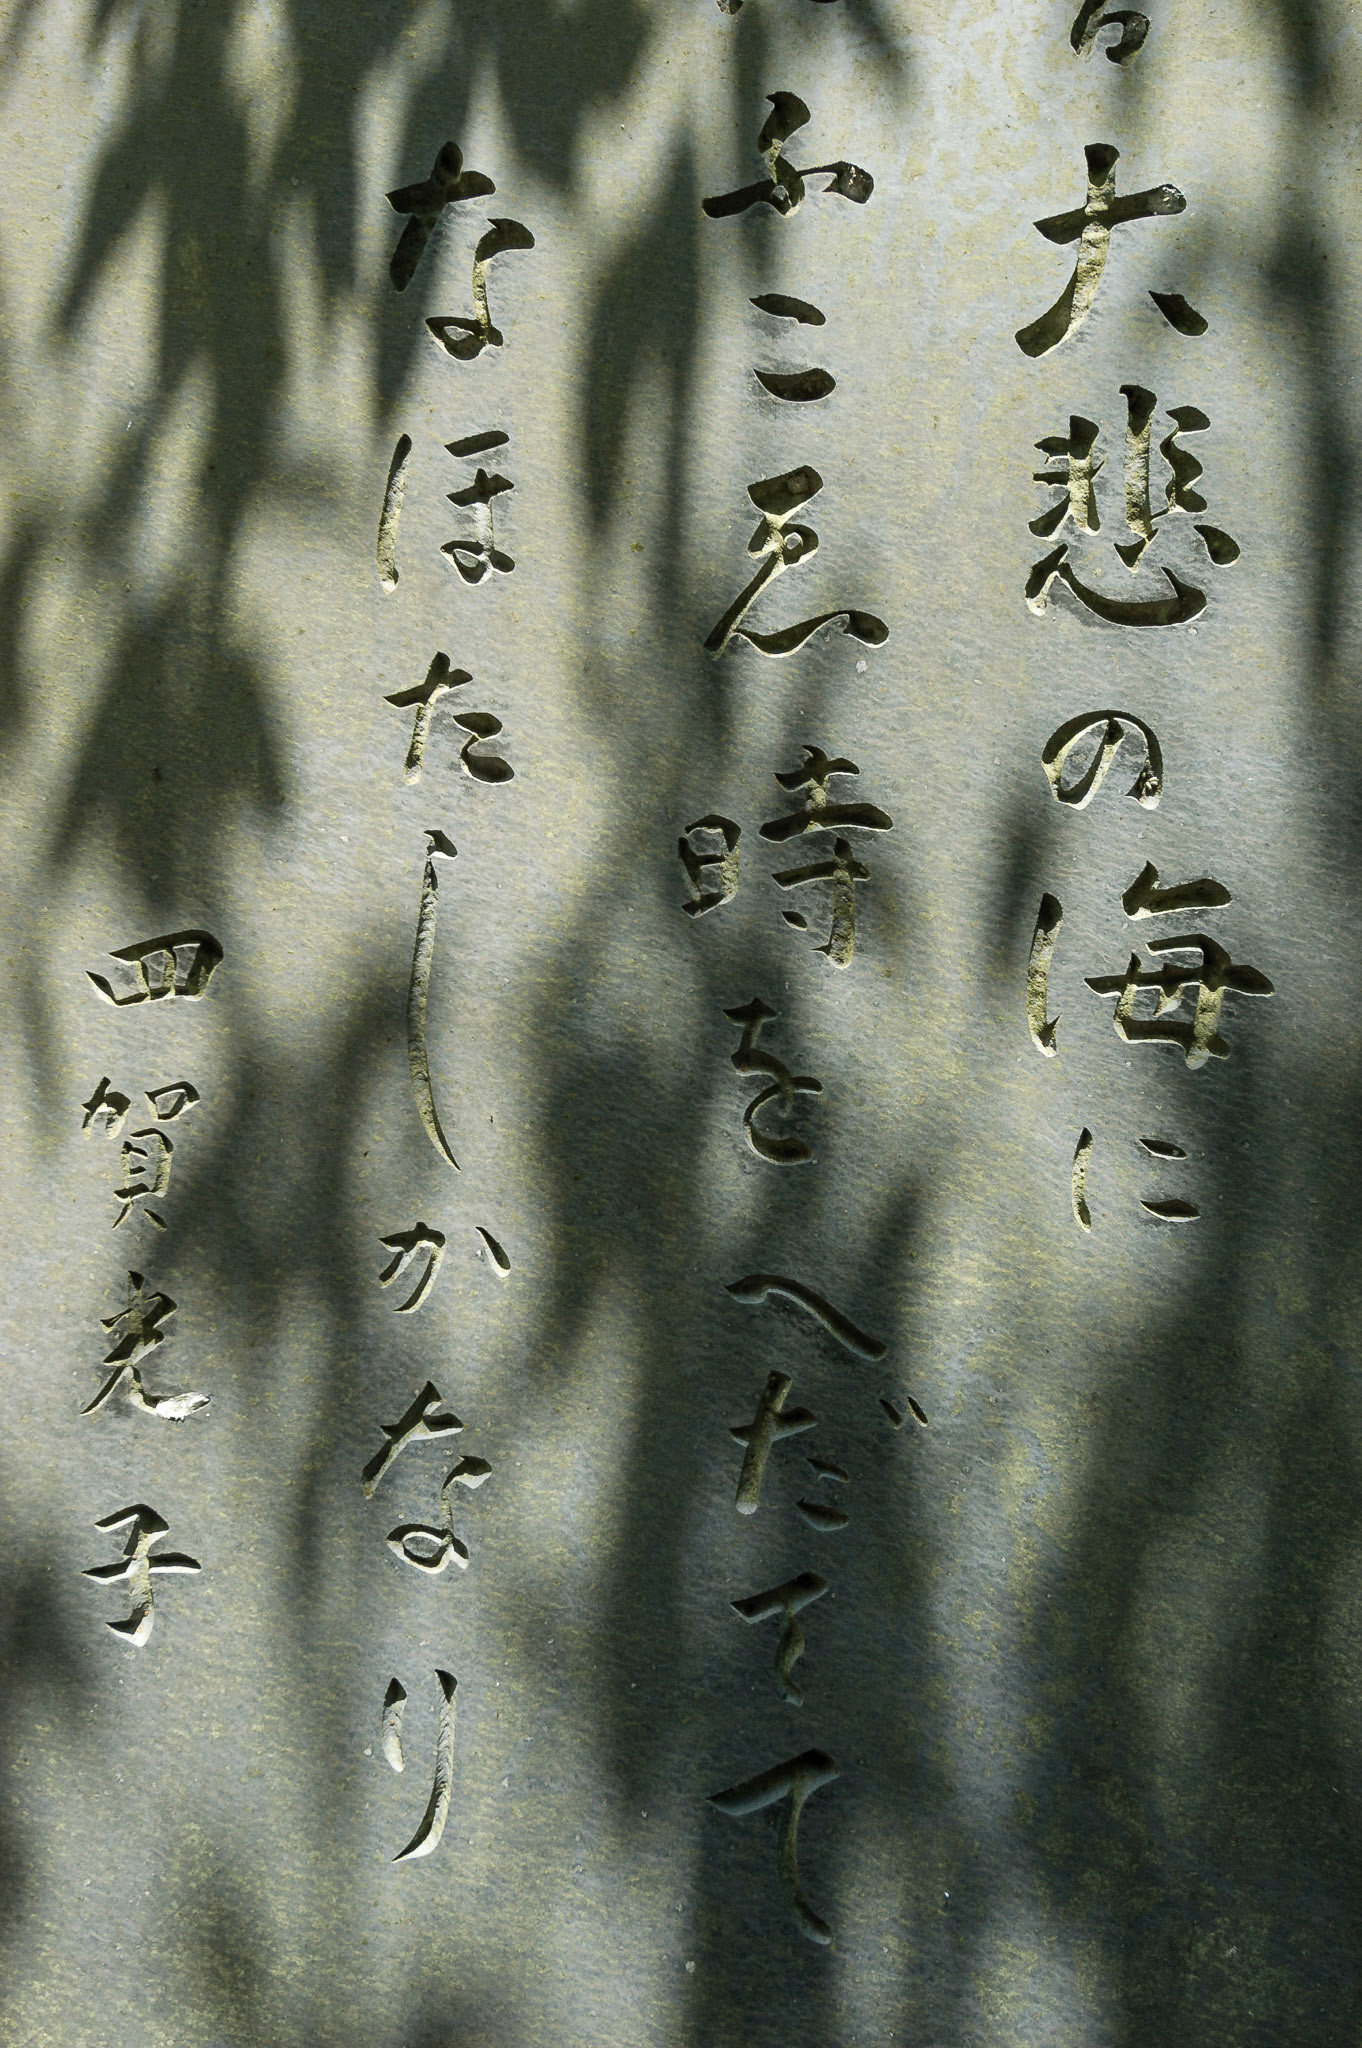 大悲の海に
ふこゑ時をへだてて
なほたしかなり
四賀光子